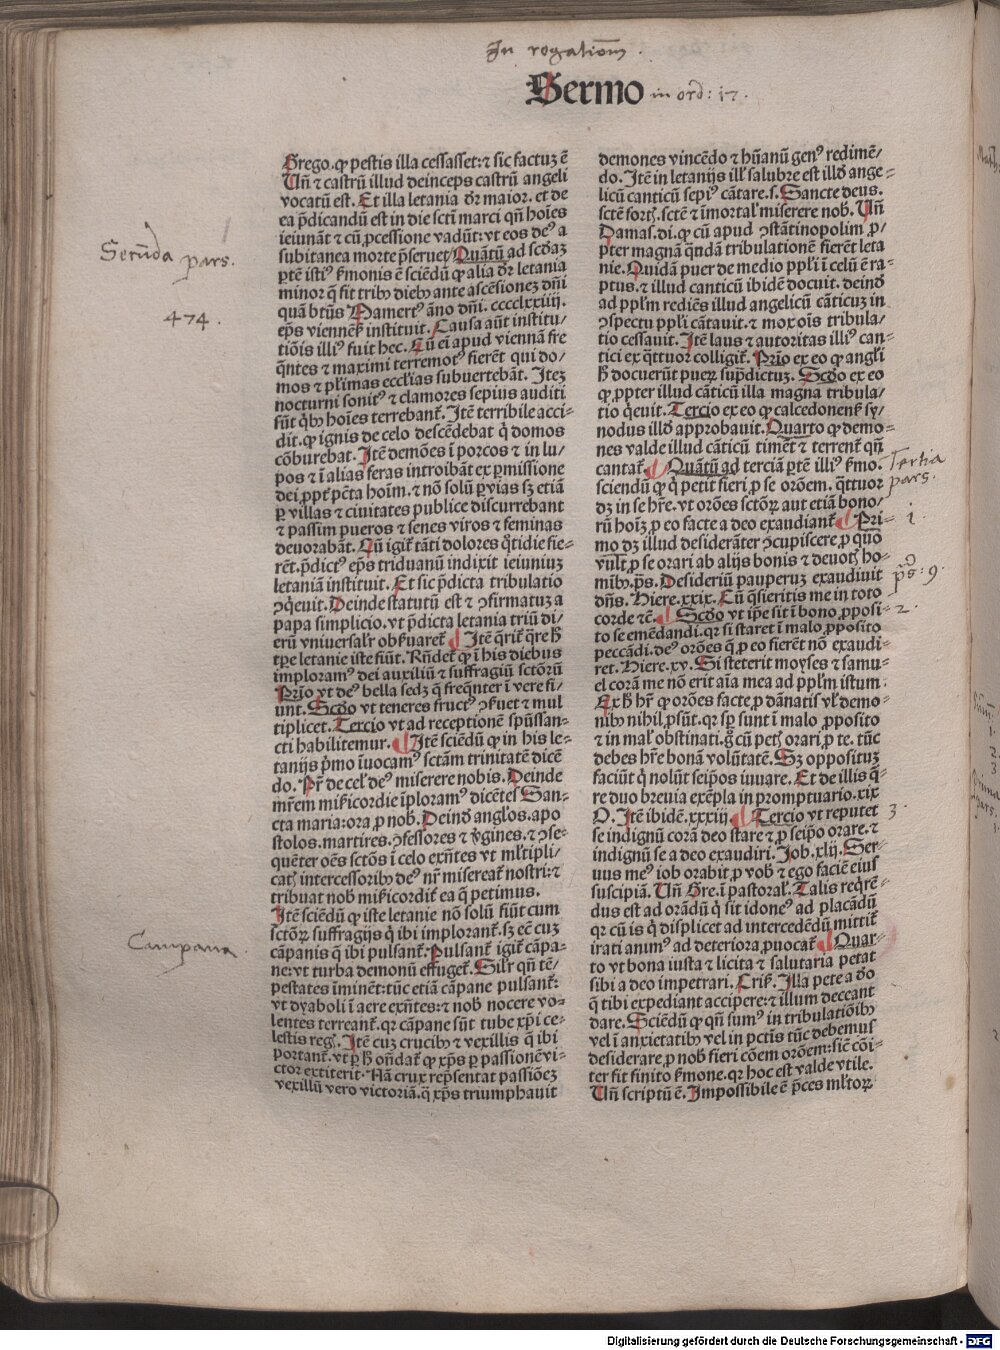 In rogationiꝰ.
Sermo in ord: 17.
Grego. ꝙ pestis illa cessasset: ⁊ sic factuꝫ ē
Uñ ⁊ castrū illud deinceps castrū angeli
vocatū est. Et illa letania dr̄ maior. et de
ea p̄dicandū est in die sctī marci qñ hoīes
ieiunāt ⁊ cū ꝓcessione vadūt: vt eos deꝰ a
subitanea morte p̄seruet Quātū ad scdaꝫ
ptē istiꝰ ẜmonis ē sciēdū ꝙ alia dr̄ letania
minor q̄ fit tribꝰ diebꝰ ante ascēsionēꝫ dñi
quā btūs Mamertꝰ āno dñi. cccclxxiiij.
eps̄ viennēẜ instituit. Causa aūt institu/
tiōis illiꝰ fuit hec. Cū ei apud viennā fre
q̄ntes ⁊ maximi terremotꝰ fierēt qui do/
mos ⁊ pl̄imas ecclīas subuertebāt. Iteꝫ
nocturni sonitꝰ ⁊ clamores sepius auditi
sūt q̇bꝰ hoīes terrebant̄. Itē terribile acci-
dit. ꝙ ignis de celo descēdebat q̇ domos
cōburebat. Itē demōes ī porcos ⁊ in lu/
pos ⁊ ī alias feras introibāt ex ꝑmissione
dei ꝓpt̄ pctā hoīm. ⁊ nō solū ꝑ vias sꝫ etiā
ꝑ villas ⁊ ciuitates publice discurrebant
⁊ passim pueros ⁊ senes viros ⁊ feminas
deuorabāt. Cū igit̄ tāti dolores q̇tidie fie-
rēt. p̄dictꝰ eps̄ triduanū indixit ieiuniuꝫ
letaniā instituit. Et sic p̄dicta tribulatio
ꝯq̇euit. Deinde statutū est ⁊ ꝯfirmatuꝫ a
papa simplicio. vt p̄dicta letania triū di/
erū vniuersalr̄ obẜuaret̄ Itē q̄rit̄ q̄re hꝰ
tꝑe letanie iste fiūt. Rñdet̄ ꝙ ī his diebus
imploramꝰ dei auxiliū ⁊ suffragiū sctōrū
Prīo vt deꝰ bella sedꝫ q̄ freq̄nter ī vere fi/
unt. Scdo vt teneres fructꝰ ꝯẜuet ⁊ mul
tiplicet. Tercio vt ad receptionē spūssan/
cti habilitemur. Itē sciēdū ꝙ in his le-
tanijs p̄mo īuocamꝰ sctam trinitatē dicē
do. Pr̄ de cel̄ deꝰ miserere nobis. Deinde
mr̄em mīẜicordie īploramꝰ dicētes San-
cta maria: ora ꝓ nob̄. Deinꝺ angl̄os. apo
stolos. martires. ꝯfessores ⁊ v̄gines. ⁊ ꝯse-
quēter oēs sctōs ī celo exñtes vt ml̄tipli/
catꝭ intercessoribꝰ deꝰ nr̄ misereat̄ nostri: ⁊
tribuat nob̄ miẜicordit̄ ea q̄ petimus.
Itē sciēdū ꝙ iste letanie nō solū fiūt cum
sctōꝝ suffragijs q̄ ibi implorant̄. sꝫ eē cuꝫ
cāpanis q̄ ibi pulsant̄. Pulsant̄ igit̄ cāpa-
ne: vt turba demonū effuget̄. Silr̄ qñ tē/
pestates īminēt: tūc etiā cāpane pulsant̄:
vt dyaboli ī aere exñtes: ⁊ nob̄ nocere vo-
lentes terreant̄. qꝛ cāpane sūt tube xp̄i ce-
lestis regꝭ. Itē cuꝫ crucibꝰ ⁊ vexillis q̄ ibi
portant̄. vt ꝑ hꝰ oñdat̄ ꝙ xp̄s ꝑ passionē vi-
ctor extiterit. Nā crux rep̄sentat passiōeꝫ
vexillū vero victoriā. q̄ xp̄s triumphauit
demones vincēdo ⁊ hūanū genꝰ redimē/
do. Itē in letanijs ill̄ salubre est illd̄ ange-
licū canticū sepiꝰ cātare. s. Sancte deus.
sctē fortꝭ. sctē ⁊ īmortal̄ miserere nob̄. Uñ
Damas. di. ꝙ cū apud ꝯstātinopolim ꝓ/
pter magnā q̄ndā tribulationē fierēt leta
nie. Quidā puer de medio ppl̄i ī celū ē ra-
ptus. ⁊ illud canticū ibidē docuit. deinꝺ
ad ppl̄m rediēs illud angelicū cāticuꝫ in
ꝯspectu ppl̄i cātauit. ⁊ mox oīs tribula/
tio cessauit. Itē laus ⁊ autoritas illiꝰ can-
tici ex q̄ttuor colligit̄. Prīo ex eo ꝙ angl̄i
hꝰ docuerūt pueꝝ sup̄dictuꝫ. Scdo ex eo
ꝙ ꝓpter illud cāticū illa magna tribula/
tio q̇euit. Tercio ex eo ꝙ calcedonenẜ sy/
nodus illd̄ approbauit. Quarto ꝙ demo-
nes valde illud cāticū timēt ⁊ terrent̄ qñ
cantat̄. Quātū ad terciā ptē illiꝰ ẜmo.
sciendū ꝙ q̇ petit fieri ꝓ se orōem. q̄ttuor
dꝫ in se hr̄e. vt orōes sctōꝝ aut etiā bono/
rū hoīꝫ ꝓ eo facte a deo exaudiant̄. Pri-
mo dꝫ illud desiderāter ꝯcupiscere ꝓ quō
vult ꝓ se orari ab alijs bonis ⁊ deuotꝭ ho-
mībꝰ. ps̄. Desideriū pauperuꝫ exaudiuit
dñs. Hiere. xxix. Cū q̄sieritis me in toto
corde ⁊c̄. Scdo vt ip̄e sit ī bono ꝓposi-
to se emēdandi. qꝛ si staret ī malo ꝓposito
peccādi. deꝰ orōes q̄ ꝓ eo fierēt nō exaudi-
ret. Hiere. xv. Si steterit moyses ⁊ samu-
el corā me nō erit aīa mea ad ppl̄m istum.
Ex hꝰ hr̄ ꝙ orōes facte ꝓ dānatis vl̄ demo-
nibꝰ nihil ꝓsūt. qꝛ sp̄ sunt ī malo ꝓposito
⁊ in mal̄ obstinati. g̊ cū petꝭ orari ꝓ te. tūc
debes hr̄e bonā volūtatē. Sꝫ oppositūꝫ
faciūt q̇ nolūt seip̄os iuuare. Et de illis q̄-
re duo breuia exēpla in promptuario. xix
O. Itē ibidē. xxxiij. Tercio vt reputet
se indignū corā deo stare ⁊ ꝓ seip̄o orare. ⁊
indignū se a deo exaudiri. Job. xlij. Ser-
uus meꝰ iob orabit ꝓ vob̄ ⁊ ego faciē eiuꝰ
suscipiā. Uñ Gre. ī pastoral̄. Talis req̇rē-
dus est ad orādū q̇ sit idoneꝰ ad placādū
qꝛ cū is q̇ displicet ad intercedēdū mittit̄
irati animꝰ ad deteriora ꝓuocat̄. Quar-
to vt bona iusta ⁊ licita ⁊ salutaria petat
sibi a deo impetrari. Criẜ. Illa pete a deo
q̄ tibi expediant accipere: ⁊ illum deceant
dare. Sciēdū ꝙ qñ sumꝰ in tribulatiōibꝰ
vel ī anxietatibꝰ vel in pctīs tūc debemus
desiderare ꝓ nob̄ fieri cōem orōem: sic̄ cōi-
ter fit finito ẜmone. qꝛ hoc est valde vtile.
Uñ scriptū ē. Impossibile ē p̄ces ml̄toꝝ
Secūda pars.
474.
Campana.
Tertia
pars.
1.
ps̄: 9.
2.
3.
Digitalisierung gefördert durch die Deutsche Forschungsgemeinschaft - DFG